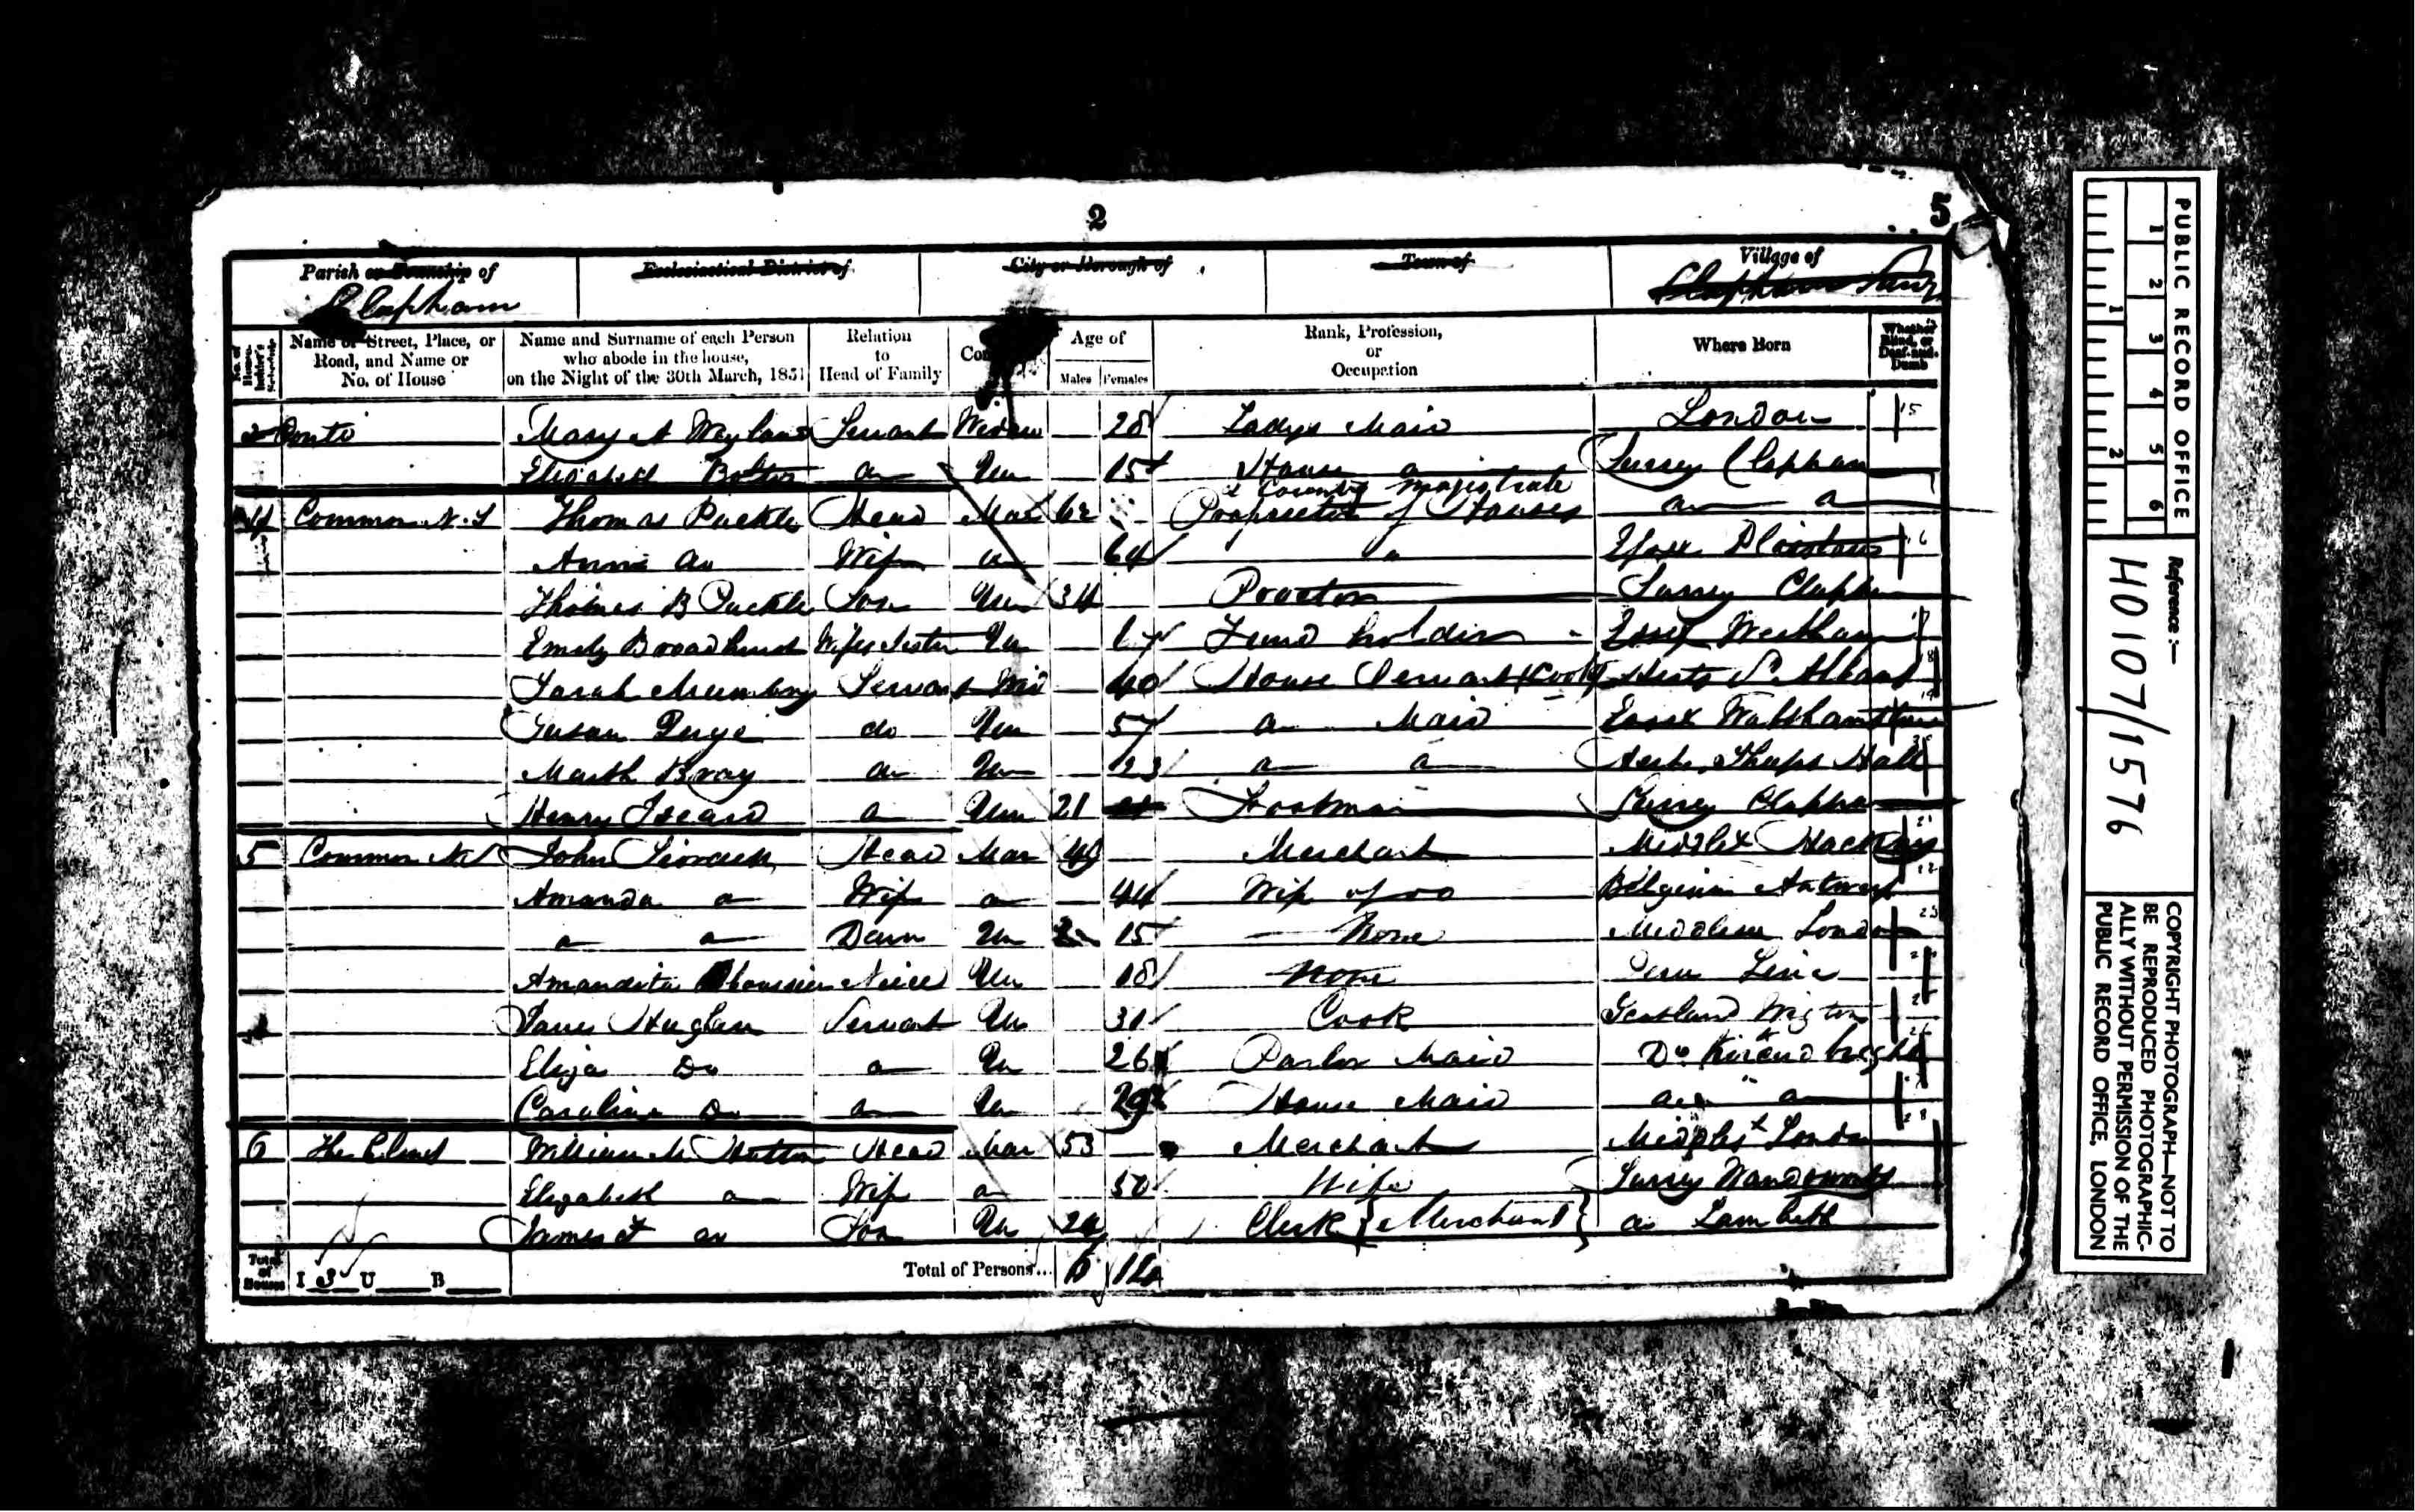 2
5
Parish or Township of
Clapham
Ecclesiastical District of
City or Borough of
Town of
Village of
Clapham
No. of House-holder's Schedule
Name of Street, Place, or Road, and Name or No. of House
Name and Surname of each Person who abode in the house, on the Night of the 30th March, 1851
Relation to Head of Family
Age of
Males Females
Rank, Profession, or Occupation
Where Born
Whether Blind, or Deaf-and-Dumb
Mary A Servant Widow 28 Ladys Maid London 15
Elizabeth Bolton Do Un 15 House Do Surrey Clapham
& County Magistrate
4 Common N.S Thomas Puckle Head Mar 62 Proprietor of Houses Do Do
Annie Do Wife Do 64 Do 16
Thomas B Puckle Son Un 34 Proctor Surrey Clapham
Emily Broadhurst Wifes Sister Un 67 Fund holder Essex Westham 17
Sarah Servant Wid 40 House Servant (Cook) Herts St Albans 18
Susan do Un 57 Do Maid Essex Walthamstow 19
Martha Bray Do Un 23 Do Do Herts Hall
Henry Do Un 21 Footman Surrey Clapham
5 Common N.S John Head Mar 49 Merchant Middlex Hackney 21
Amanda Do Wife Do 44 Wife of Do Belgium Antwerp
Do Do Daur Un 15 None Middlesex London 23
Amandita Niece Un 18 None Peru Lima
Servant Un 31 Cook Scotland Wigton 25
Eliza Do Do Un 26 Parlor Maid Do Kircudbright 26
Caroline Do Do Un 29 House Maid Do Do
6 The Elms William M Hutton Head Mar 53 Merchant Middlex London 28
Elizabeth Do Wife Do 50 Wife Surrey Wandsworth
James F Do Son Un 24 Clerk { Merchant } Do Lambeth
Total of Houses
I 3 U B
Total of Persons... 6
PUBLIC RECORD OFFICE
1 2 3 4 5 6
1 2
Reference :—
HO107/1576
COPYRIGHT PHOTOGRAPH—NOT TO
BE REPRODUCED PHOTOGRAPHIC-
ALLY WITHOUT PERMISSION OF THE
PUBLIC RECORD OFFICE, LONDON